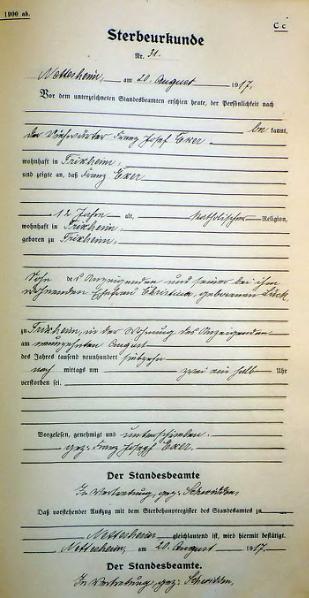 1900 ab.
C c
Sterbeurkunde
Nr. 31.
Nettersheim, am 20. August 1917.
Vor dem unterzeichneten Standesbeamten erschien heute, der Persönlichkeit nach
be kannt,
der Franz Josef Exer
wohnhaft in Frixheim,
und zeigte an, daß Franz Exer
12 Jahre alt, katholischer Religion,
wohnhaft in Frixheim,
geboren zu Frixheim,
Sohn des Anzeigenden und seiner bei ihm
wohnenden Ehefrau geborenen
zu Frixheim, in der Wohnung des Anzeigenden
am neunzehnten August
des Jahres tausend neunhundert siebzehn
nach mittags um zwei ein halb Uhr
verstorben sei.
Vorgelesen, genehmigt und unterschrieben.
gez: Franz Josef Exer.
Der Standesbeamte
In Vertretung, gez:
Daß vorstehender Auszug mit dem Sterbehauptregister des Standesamtes zu
Nettersheim gleichlautend ist, wird hiermit bestätigt.
Nettersheim, am 20. August 1917.
Der Standesbeamte.
In Vertretung, gez: